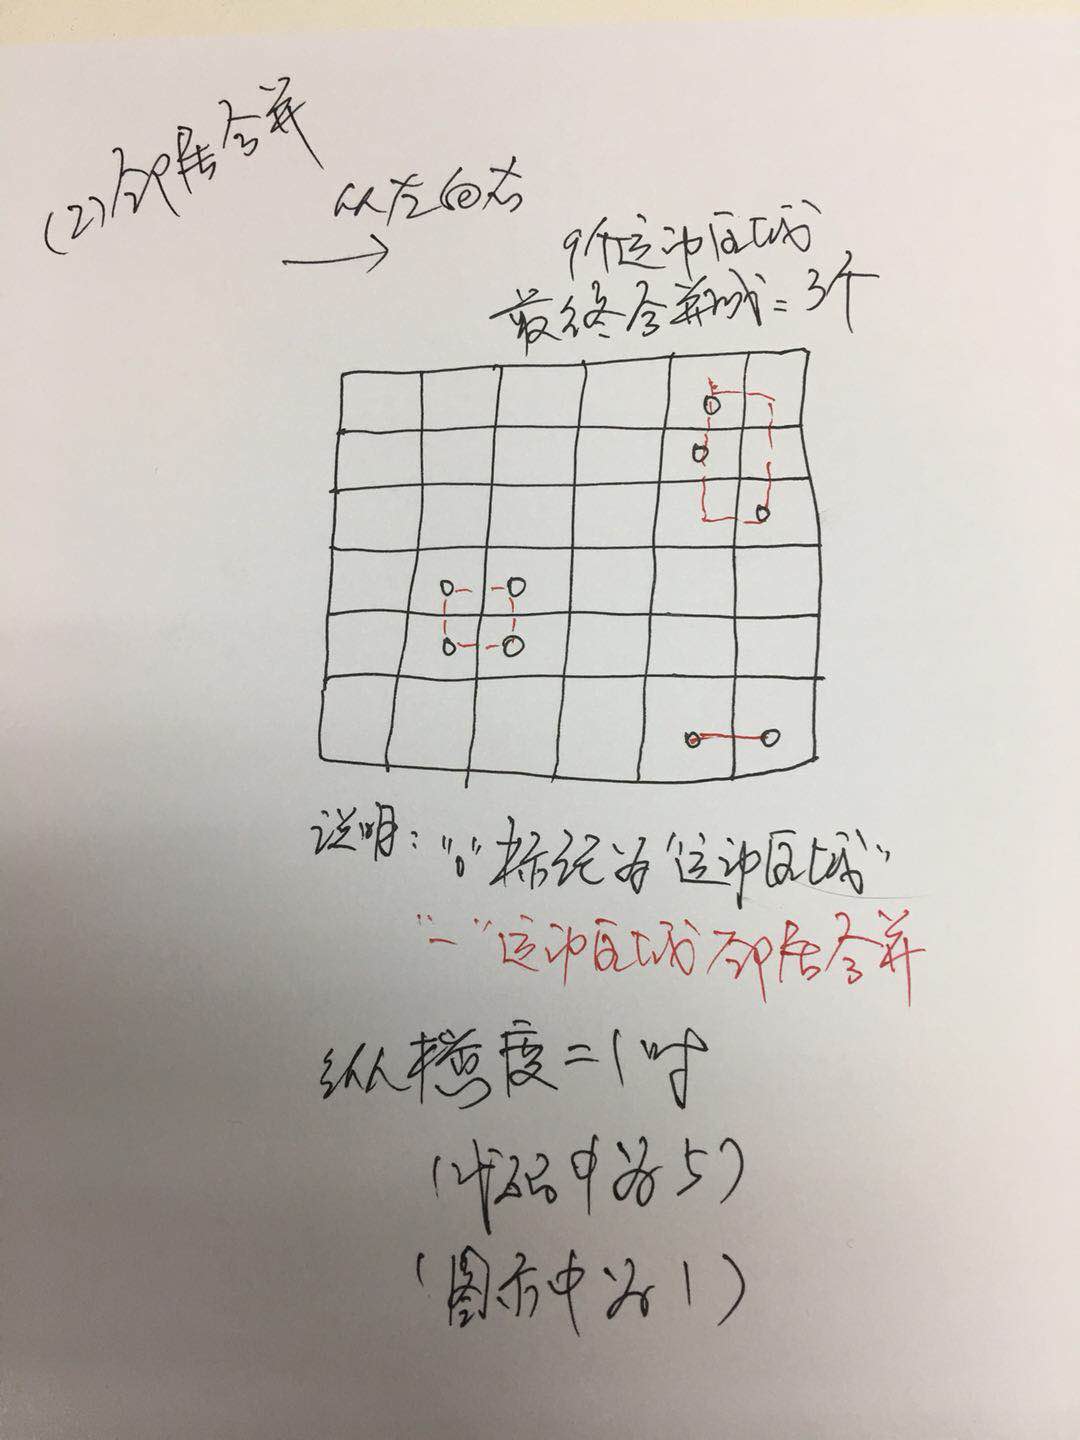 (2)邻居合并
从左向右
9个运动区域
最终合并成=3个
说明："o"标记为"运动区域"
"-"运动区域邻居合并
纵横度=1时
(代码中为5)
(图示中为1)